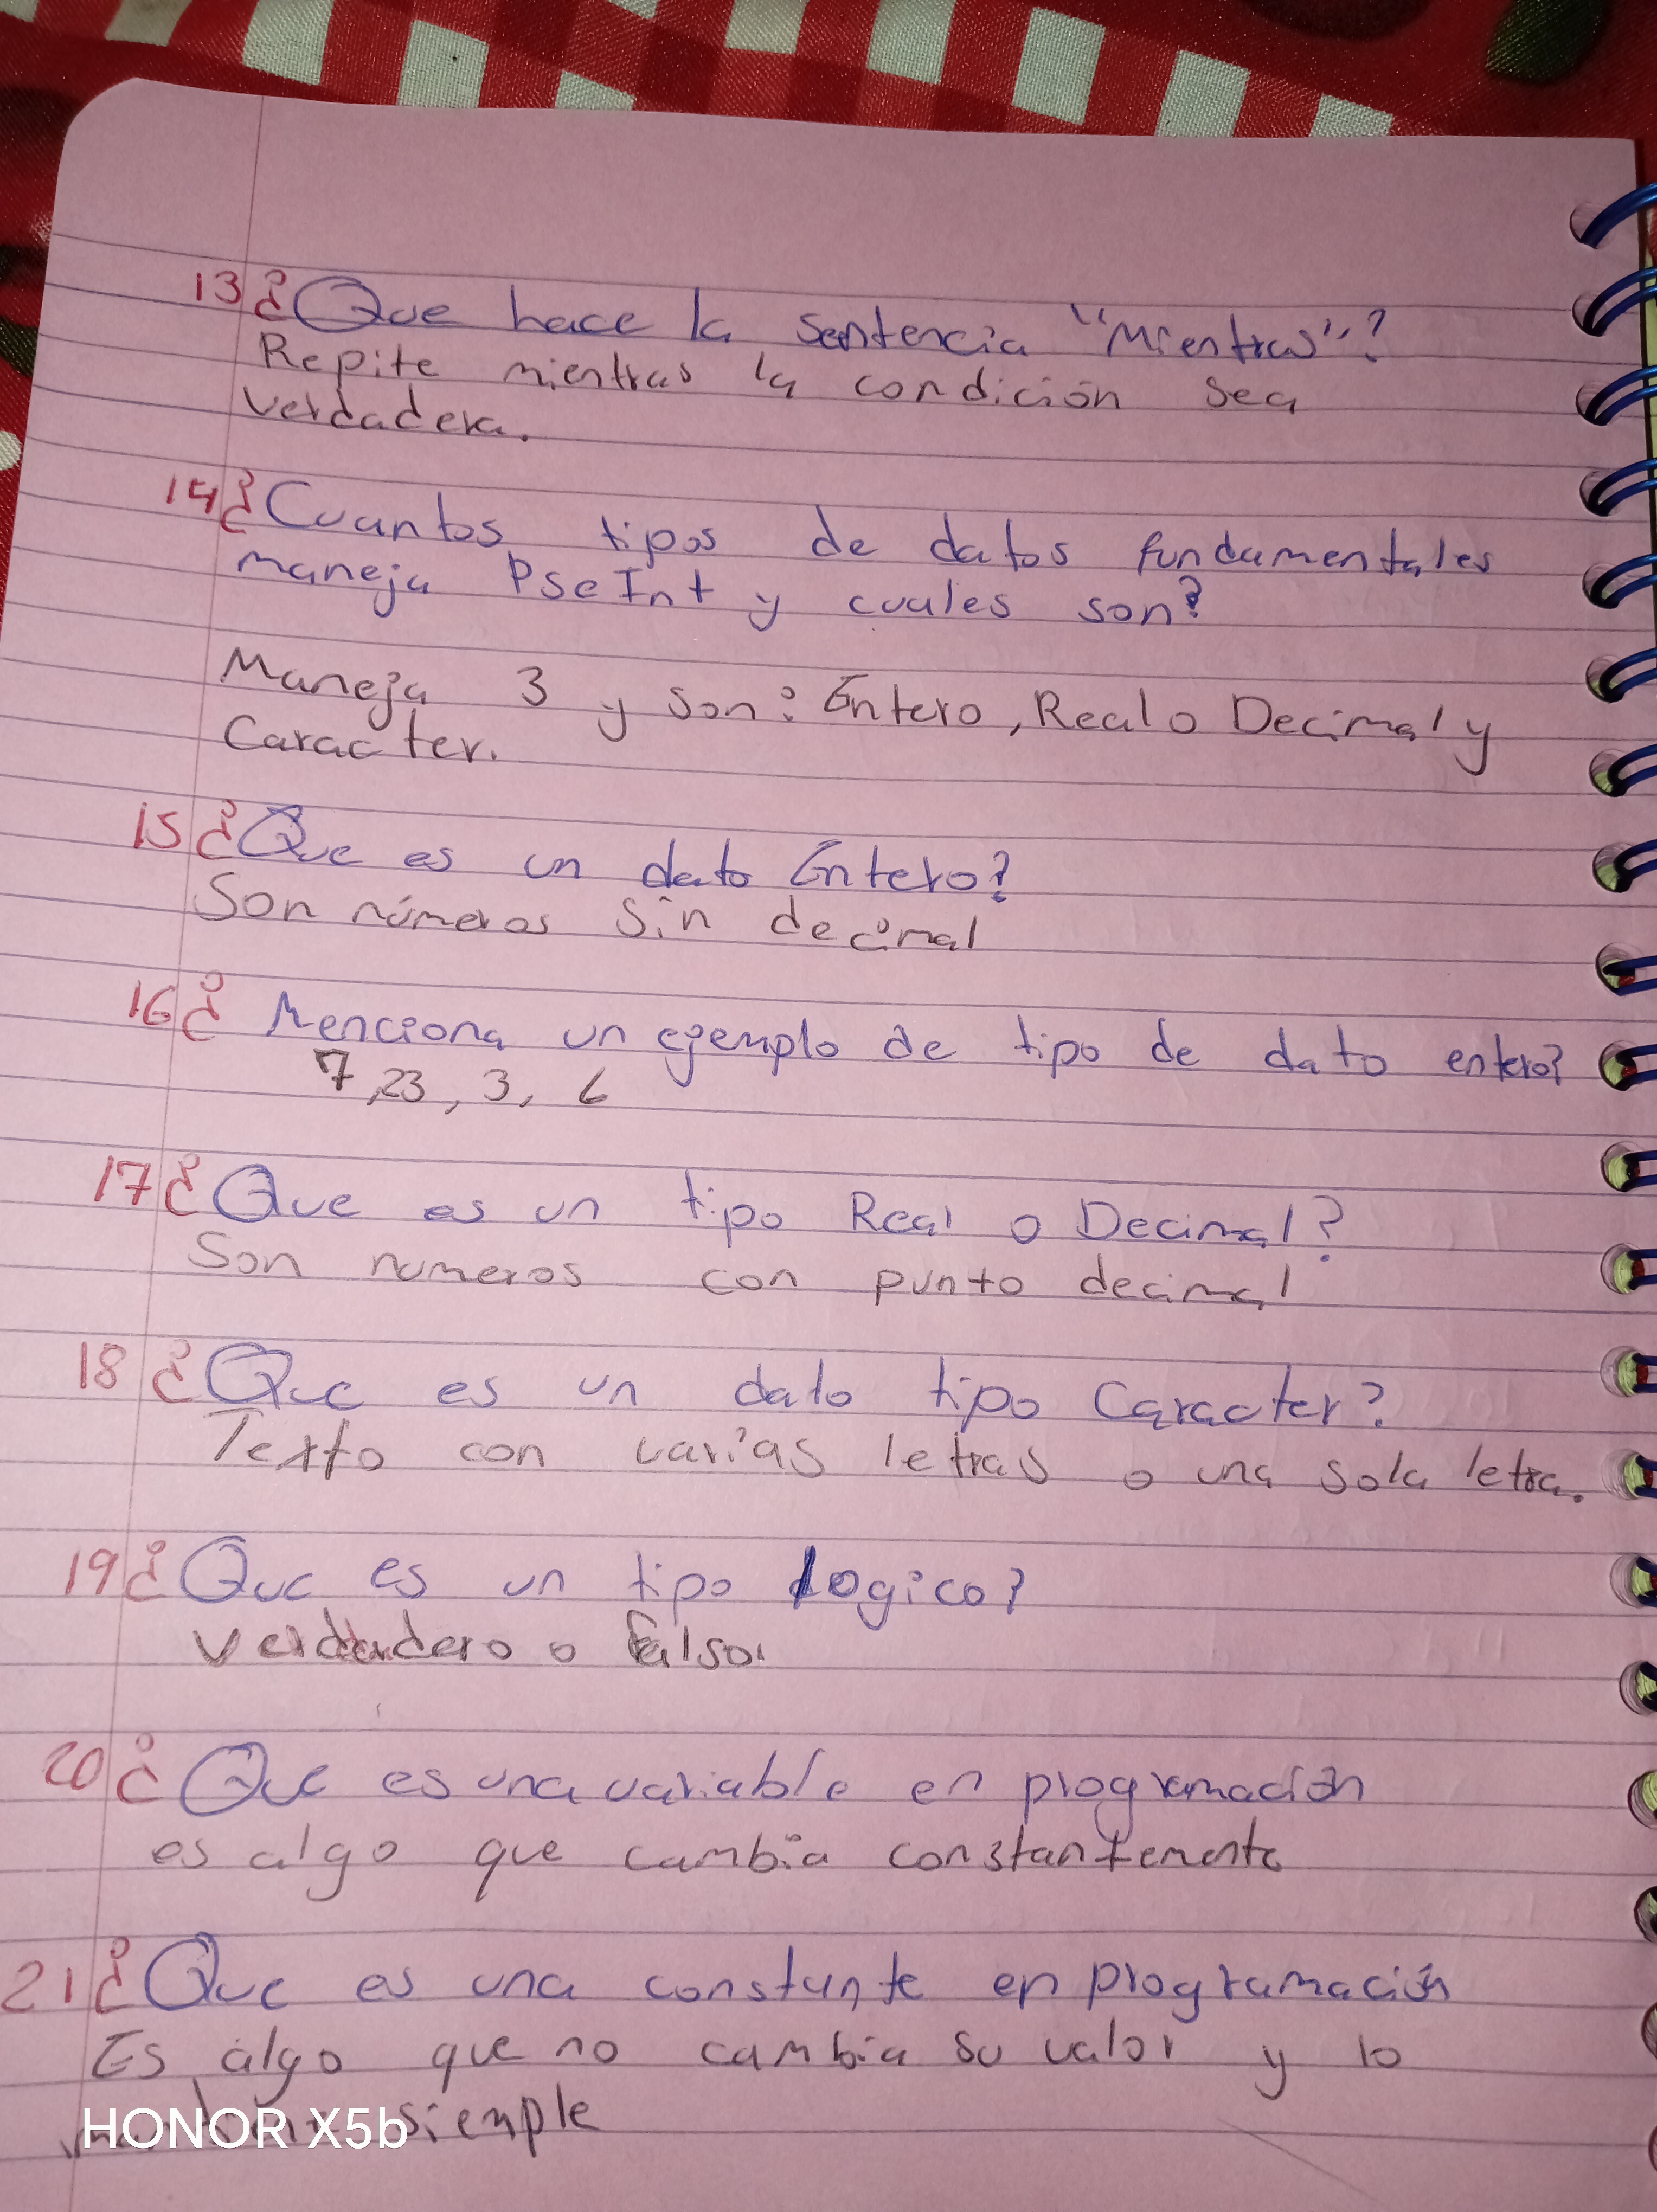 13 ¿Que hace la sentencia "Mientras"?
Repite mientras la condición sea
verdadera.
14 ¿Cuantos tipos de datos fundamentales
maneja PseInt y cuales son?
Maneja 3 y son: Entero, Real o Decimal y
Caracter.
15 ¿Que es un dato Entero?
Son números sin decimal
16 ¿ Menciona un ejemplo de tipo de dato entero?
7, 23, 3, 6
17 ¿Que es un tipo Real o Decimal?
Son numeros con punto decimal
18 ¿Que es un dato tipo Caracter?
Texto con varias letras o una sola letra.
19 ¿Que es un tipo logico?
Verdadero o falso.
20 ¿Que es una variable en programación
es algo que cambia constantemente
21 ¿Que es una constante en programación
Es algo que no cambia su valor y lo
siemple
HONOR X5b